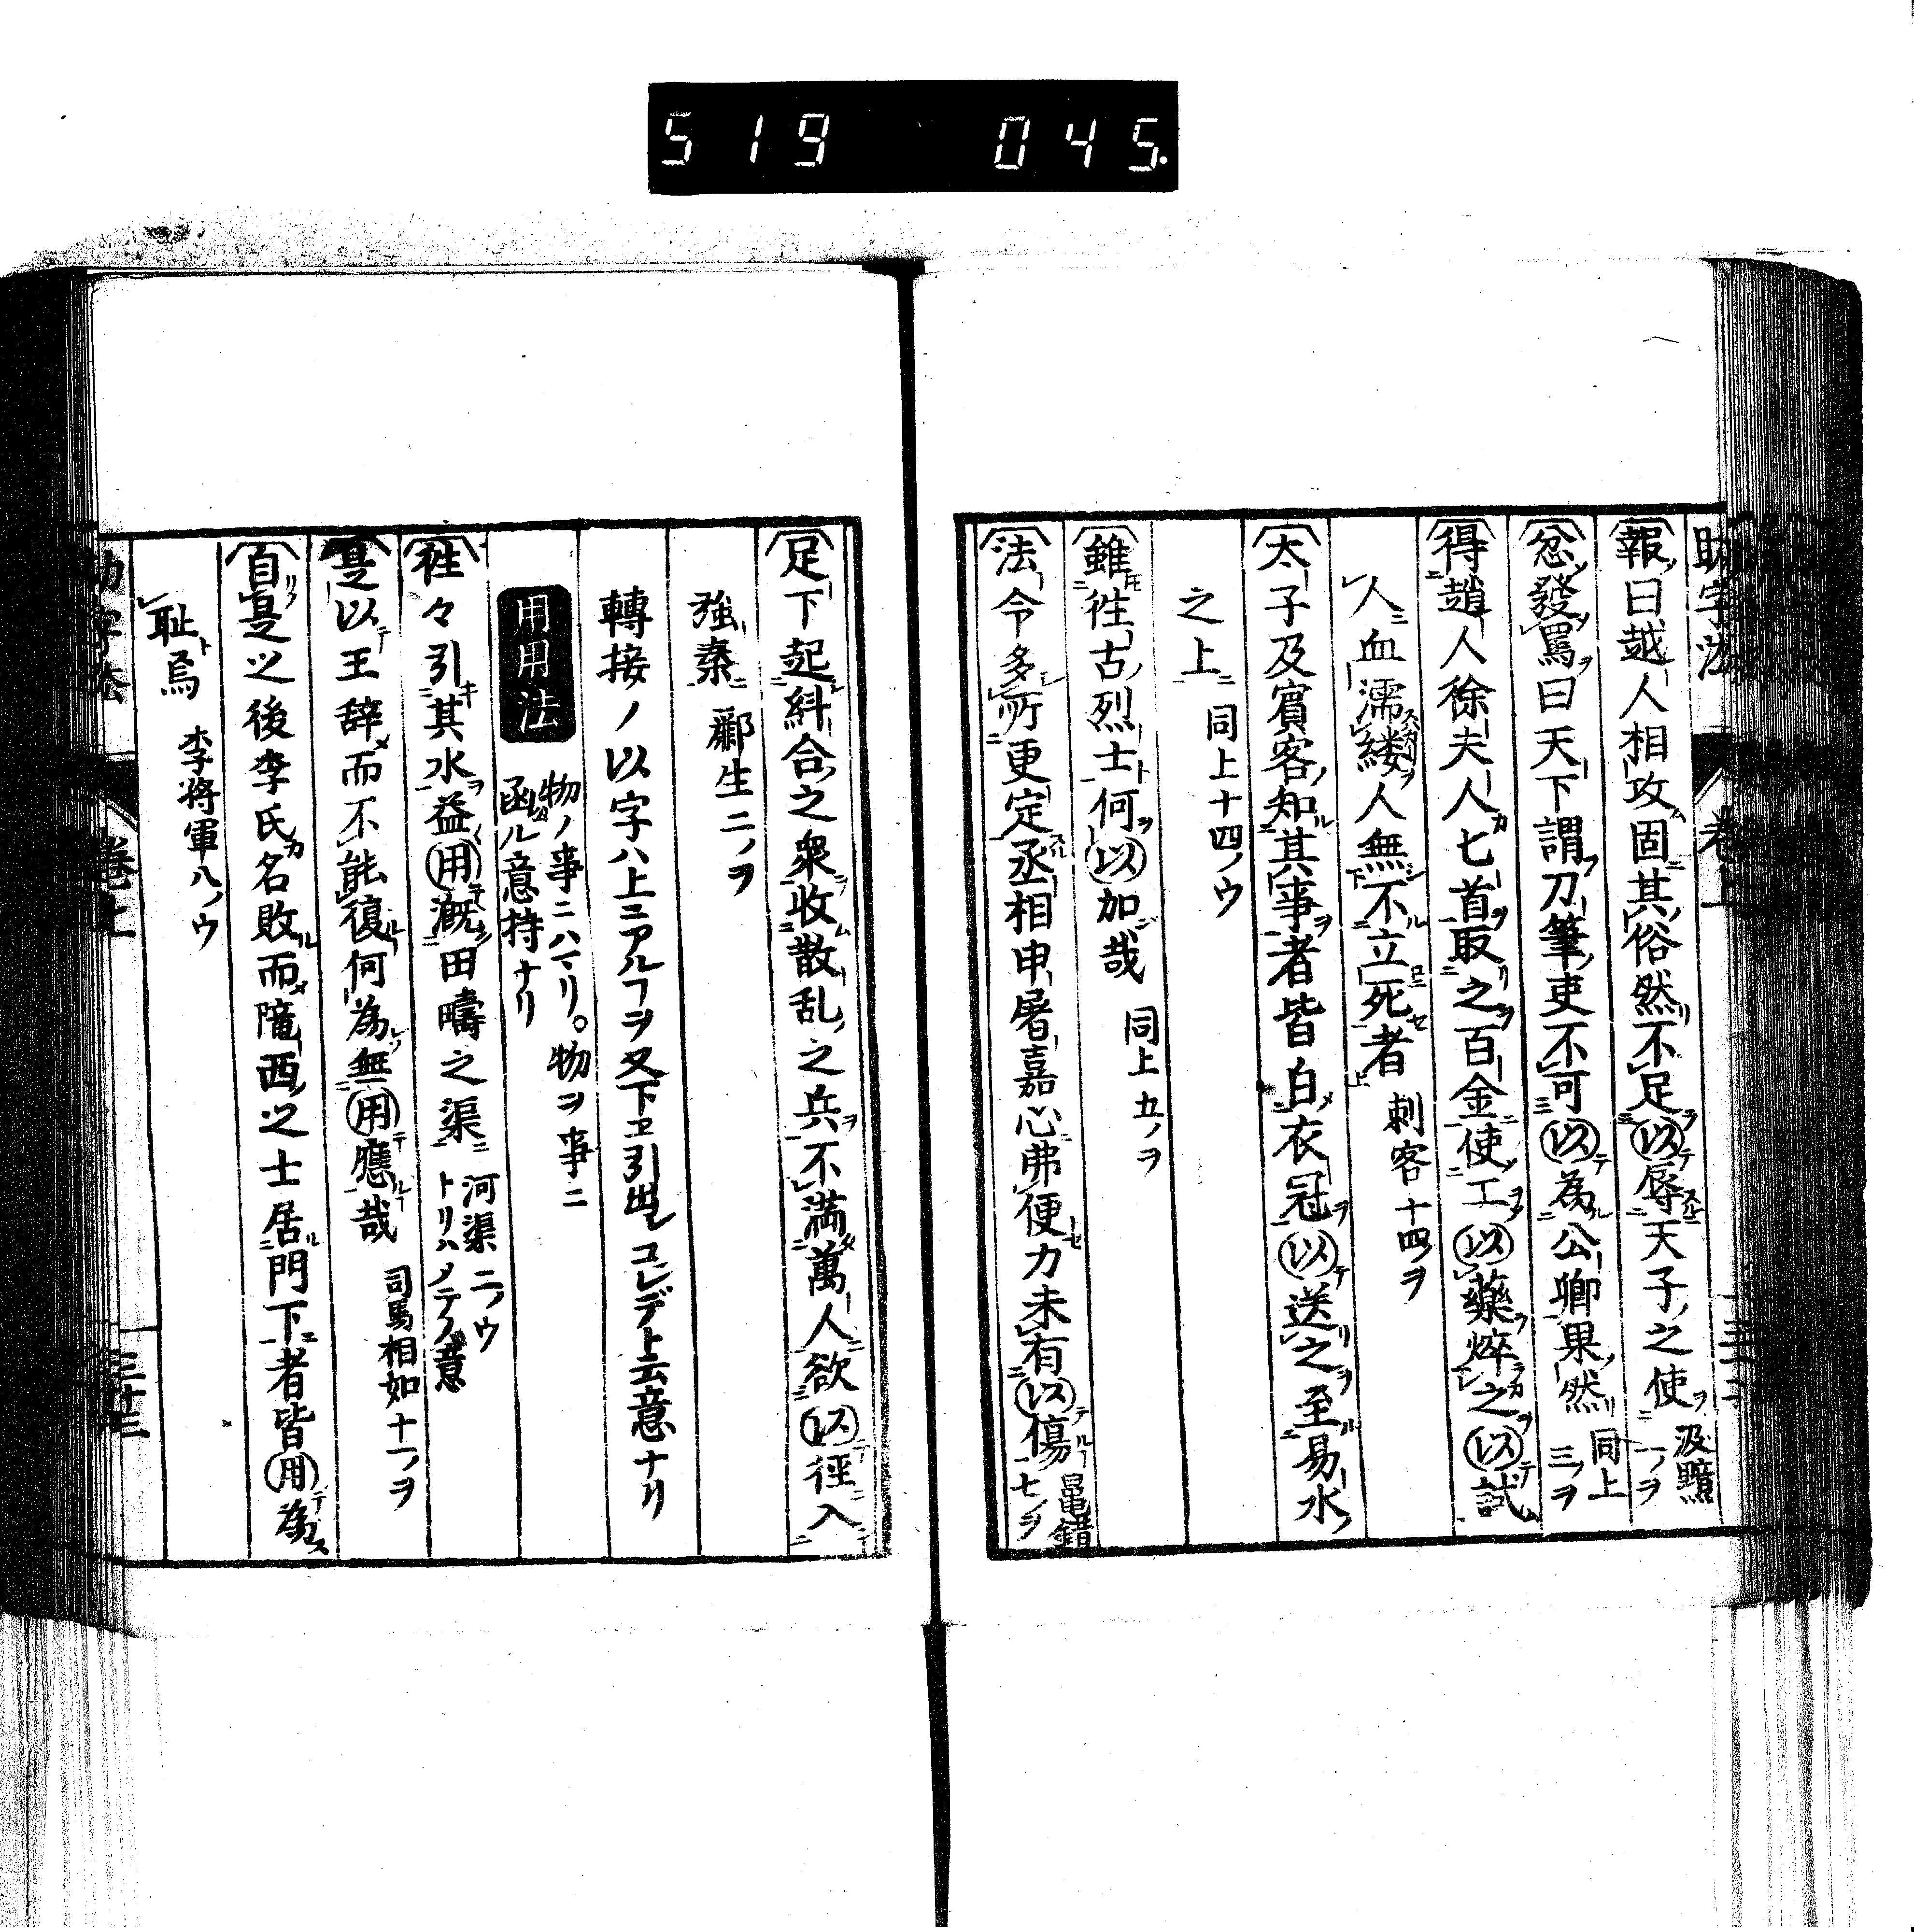 519 045.
助字法 卷上
報曰越人相攻固其俗然不足以辱天子之使 汲黯 一ノヲ
忿發罵曰天下謂刀筆吏不可以為公卿果然 同上 三ノヲ
得趙人徐夫人匕首取之百金使工以藥焠之以試
人血濡縷人無不立死者 刺客十四ノヲ
太子及賓客知其事者皆白衣冠以送之至易水
之上 同上十四ノウ
雖徃古烈士何以加哉 同上 九ノヲ
法令多所更定丞相申屠嘉心弗便力未有以傷 鼂錯 七ノヲ
足下起糾合之衆收散乱之兵不滿萬人欲以徑入
強秦 酈生二ノヲ
轉接ノ以字ハ上ニアルヿヲ又下ヱ引出シコレデト云意ナリ
用用法 物ノ事ニハマリ。物ヲ事ニ
函ル意持ナリ
徃々引其水益用漑田疇之渠 河渠二ノウ トリハノテノ意
是以王辞而不能復何為無用應哉 司馬相如十一ノヲ
自是之後李氏名敗而隴西之士居門下者皆用為
恥焉 李將軍八ノウ
助字法 卷上 三十三